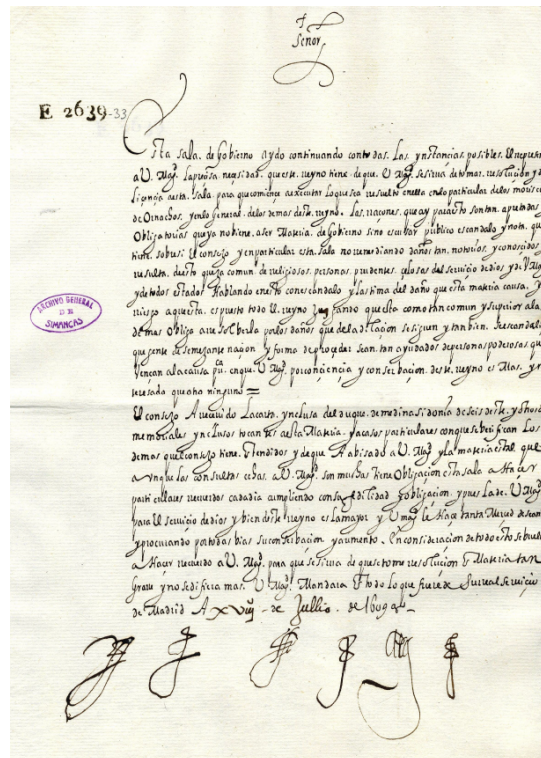 Señor
E 2639-33
Esta sala. de Gobierno a ydo continuando con todas. Las ynstancias posibles. El
a U. Magd. La preçisa neçesidad. que este. reyno tiene. de que. U Magd. se sirva de tomar. resoluçion y
liçençia a esta. sala para que comiençe a executar lo que sea resuelto en lo particular. de los
de Ornachos. y en lo general. de los demas deste. reyno. Las. raçones. que ay para esto son tan. apretadas
Obligatorias que ya no biene. a ser Materia. de Gobierno sino escrupulo publico escandalo y nota. que
tiene. sobre si El consejo y en particular esta. sala no remediando daños tan. notorios. y conosçidos
resulta. desto quexa comun. de religiosos. personas. prudentes. çelosas del serviçio de dios y de V Magd
y de todos estados Hablando en esto con escandalo y lastima del daño que esta materia causa. y
riesgo a questa. espuesto todo El. reyno
demas obliga a resolberla por los daños que de la dilaçion se siguen y tanbien.
que gente de semejante naçion y forma de proçeder sean. tan ayudados de personas poderosas que
vençan a la causa pca. en que. U Magd. por conçiençia y conserbaçion. deste. reyno es Mas. yn
teresado que otro ninguno =
El consejo A reçivido La carta. ynclusa del duque. de medina sidonia de seis deste. y otros
memoriales ynclusos tocantes a esta Materia. y a casos particulares con que se berifican Los
demas que el consejo tiene. Entendidos y de que A abisado a U. Magd. y la materia es tal que
aunque las consultas echas. a U. Magd. son muchas tiene Obligaçion esta sala a Haçer
particulares recuerdos cada dia cumpliendo con su fidilidad y obligaçion. y pues La de. U Magd.
para El serviçio de dios y bien deste reyno es La mayor y U Magd. le Haçe tanta Merced
y procurando por todas bias su conserbaçion y aumento. En consideraçion de todo esto se buelbe
a Haçer recuerdo a U. Magd. para que se sirva de que se tome resoluçion En Materia tan
grave y no se difiera mas. U Magd. Mandara En todo lo que fuere de su real serviçio
de Madrid A XViij de Jullio. de 1609
ARCHIVO GENERAL
DE
SIMANCAS